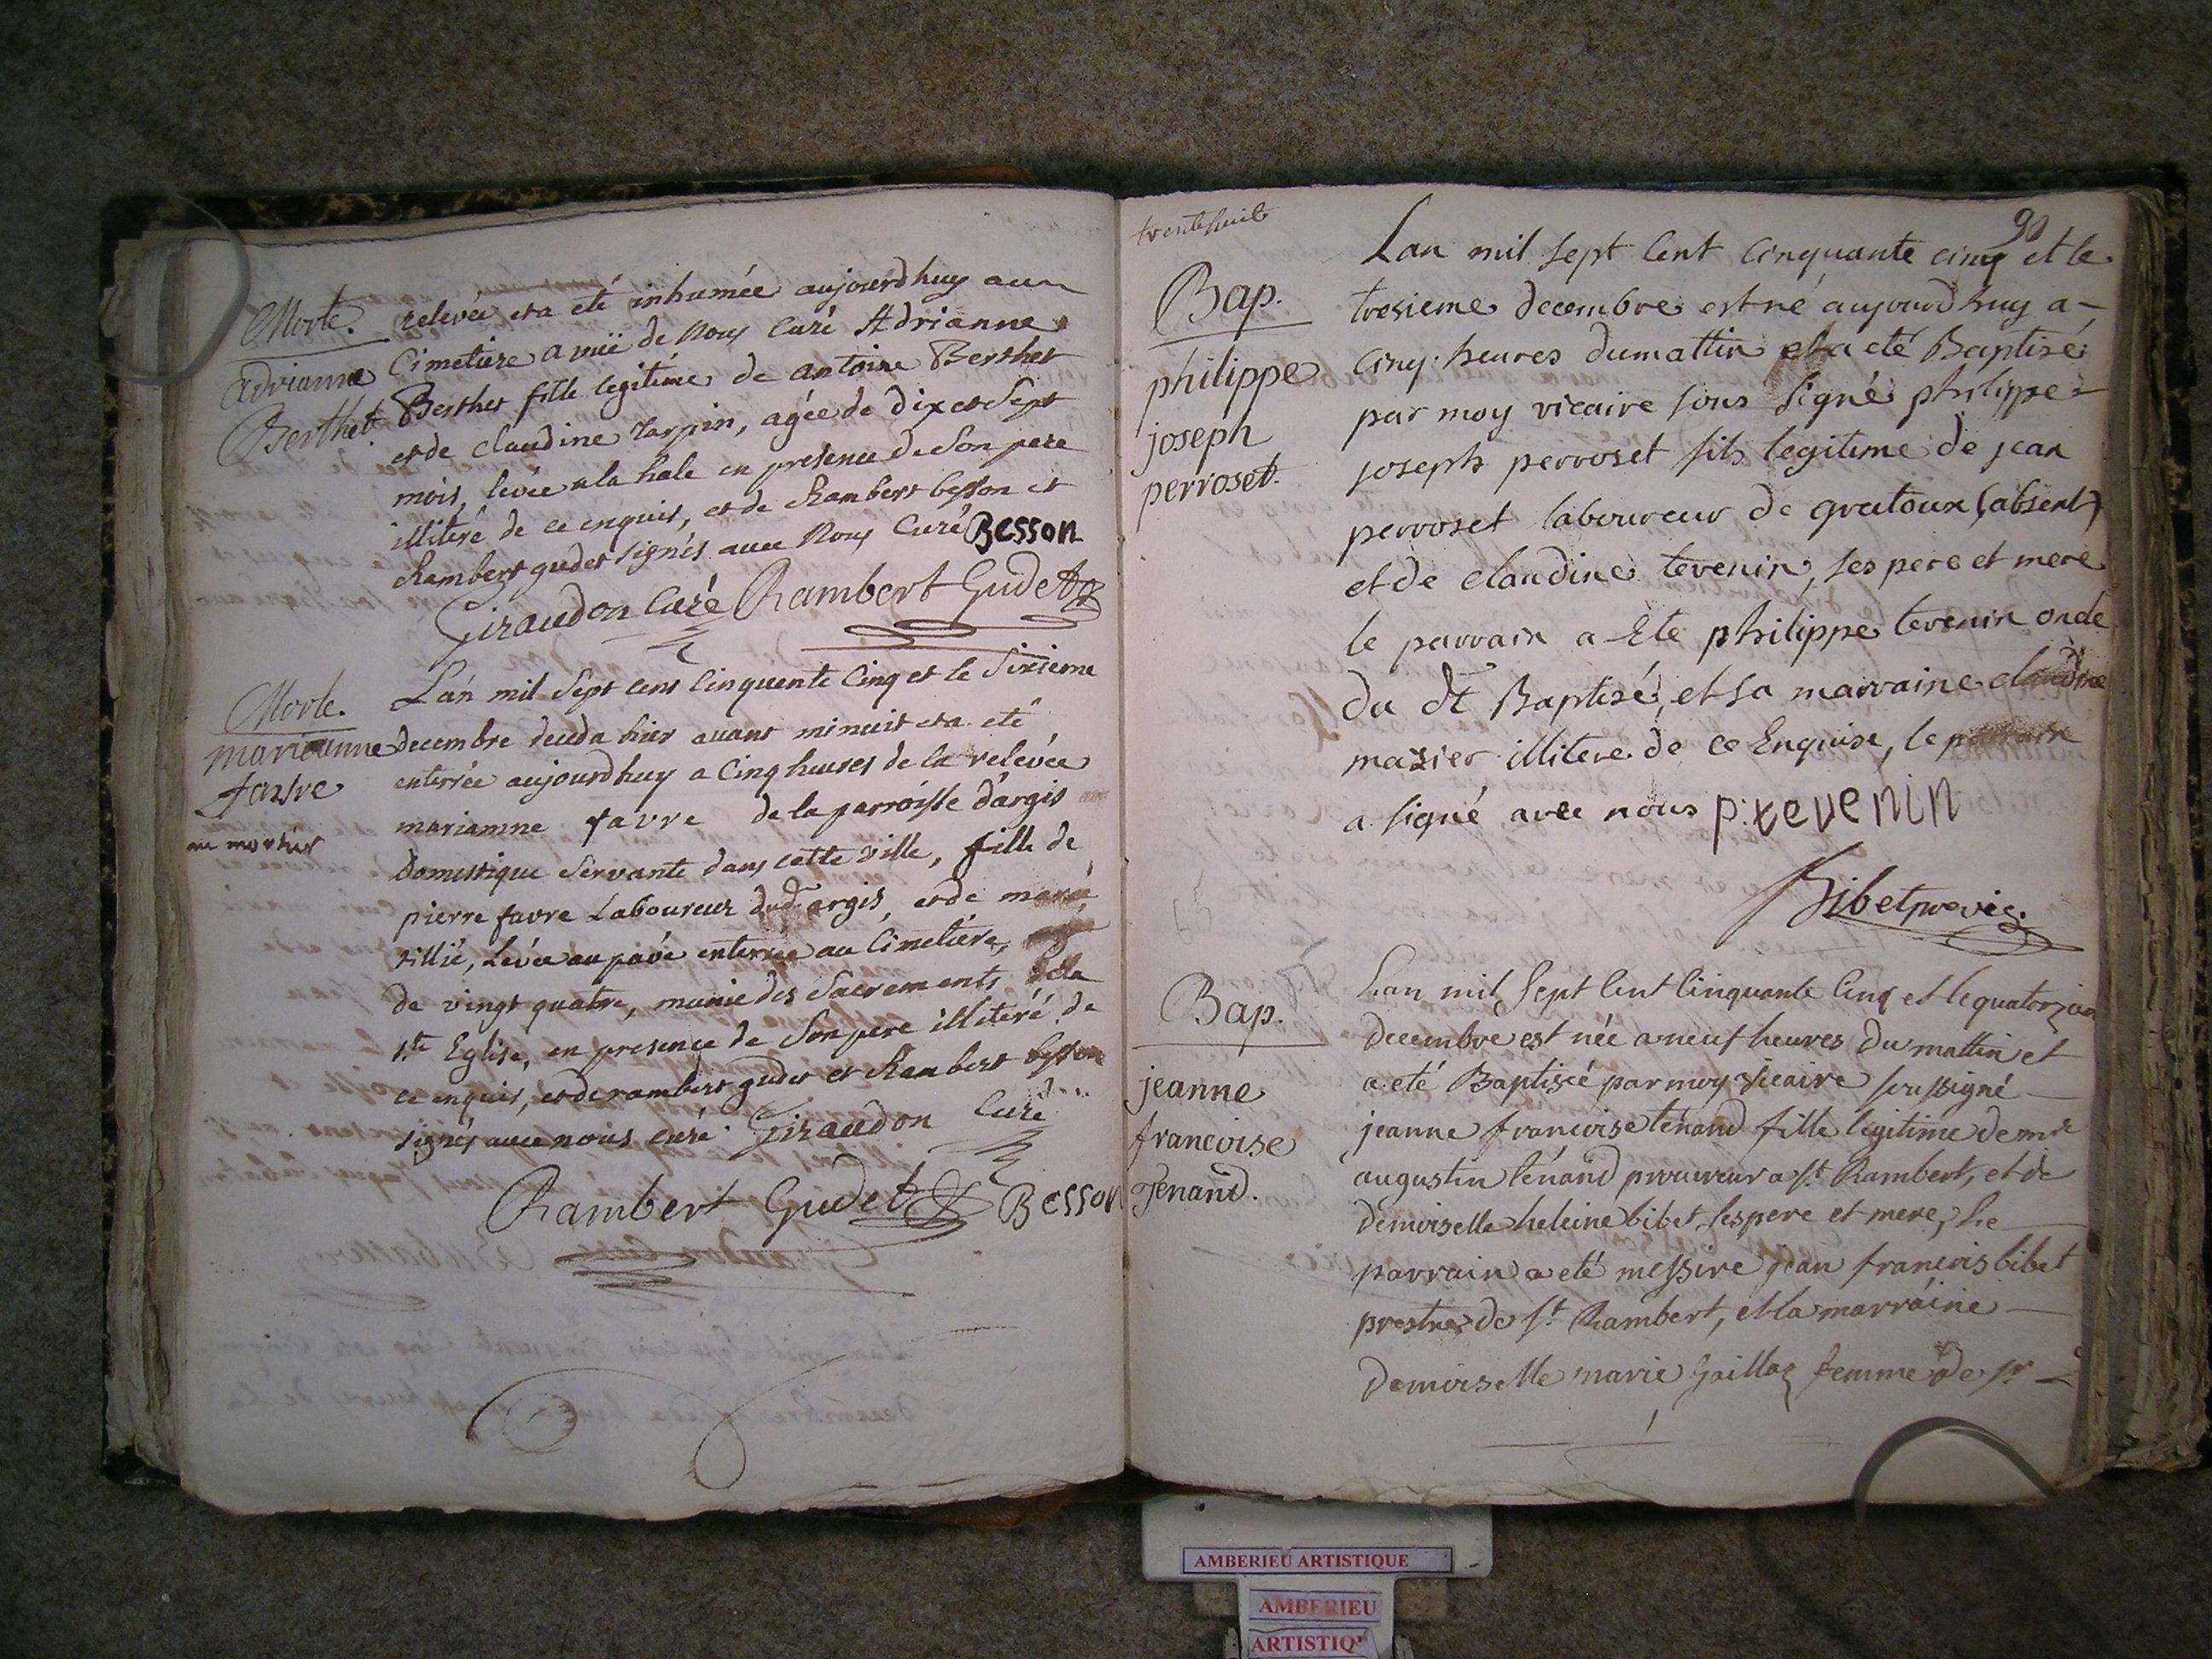 Morte.
Adrianne
Berthet.
relevée et a eté inhumée aujourdhuy au
Cimetiere a vuë de Nous Curé Adrianne
Berthet fille legitime de antoine Berthet
et de claudine tarpin, agée de dix et Sept
mois, levée a la hale en presence de Son pere
illiteré de ce enquis, et de Rambert besson et
Rambert gudet signés avec Nous Curé Besson
Giraudon Curé Rambert Gudet
Morte.
marieanne
favre
L'an mil Sept cens Cinquente Cinq et le Sixieme
decembre deceda hier avant minuit et a eté
enterrée aujourdhuy a Cinq heures de la relevée
marianne favre de la parroisse d'argis
Domestique Servante dans cette ville, fille de
pierre favre Laboureur dud. argis, et de
tillié, Levée au pavé enterrée au Cimetiere,
de vingt quatre, munie des Sacrements de la
Ste Eglise, en presence de Son pere illiteré de
ce enquis, et de rambert gudet et Rambert besson
signés avec nous curé Giraudon Curé
Rambert Gudet Besson
trente huit
90
Bap.
philippe
joseph
perroset.
Lan mil sept Cent Cinquante cinq et le
tresieme decembre est né aujourdhuy a
cinq heures du mattin et a eté Baptisé
par moy vicaire sous signé philippe
joseph perroset fils legitime de jean
perroset laboureur de gratoux (absent)
et de claudine tevenin, ses pere et mere
le parrain a Ete philippe tevenin oncle
du dt Baptisé, et sa marraine claudine
mazier illitere de ce Enquise, le
a signé avec nous p. tevenin
Bibet pre vic.
Bap.
jeanne
francoise
Tenand.
Lan mil Sept Cent Cinquante Cinq et le quatorzieme
decembre est née a neuf heures du mattin et
a eté Baptisée par moy vicaire soussigné
jeanne francoise tenand fille legitime de mre
augustin tenand procureur a St Rambert, et de
demoiselle heleine bibet ses pere et mere, Le
parrain a eté messire jean francois bibet
prestre de St Rambert, et la marraine
demoiselle marie femme de Sr
AMBERIEU ARTISTIQUE
AMBERIEU
ARTISTIQ